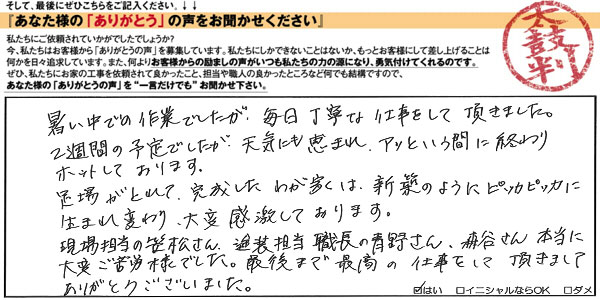 そして、最後にぜひこちらをご記入ください。↓↓
『あなた様の「ありがとう」の声をお聞かせください』
私たちにご依頼されていかがでしたでしょうか?
今、私たちはお客様から「ありがとうの声」を募集しています。私たちにしかできないことはないか、もっとお客様にして差し上げることは
何かを日々追求しています。また、何よりお客様からの励ましの声がいつも私たちの力の源になり、勇気付けてくれるのです。
ぜひ、私たちにお家の工事を依頼されて良かったこと、担当や職人の良かったところなど何でも結構ですので、
あなた様の「ありがとうの声」を“一言だけでも”お聞かせ下さい。
太鼓判
暑い中での作業でしたが、毎日丁寧な仕事をして頂きました。
2週間の予定でしたが、天気にも恵まれ、アッという間に終わり
ホッとしております。
足場がとれて、完成したわが家は、新築のようにピッカピッカに
生まれ変わり、大変感激しております。
現場担当の笠松さん、塗装担当職長の青野さん、森谷さん本当に
大変ご苦労様でした。最後まで最高の仕事をして頂きまして
ありがとうございました。
☑はい □イニシャルならOK □ダメ